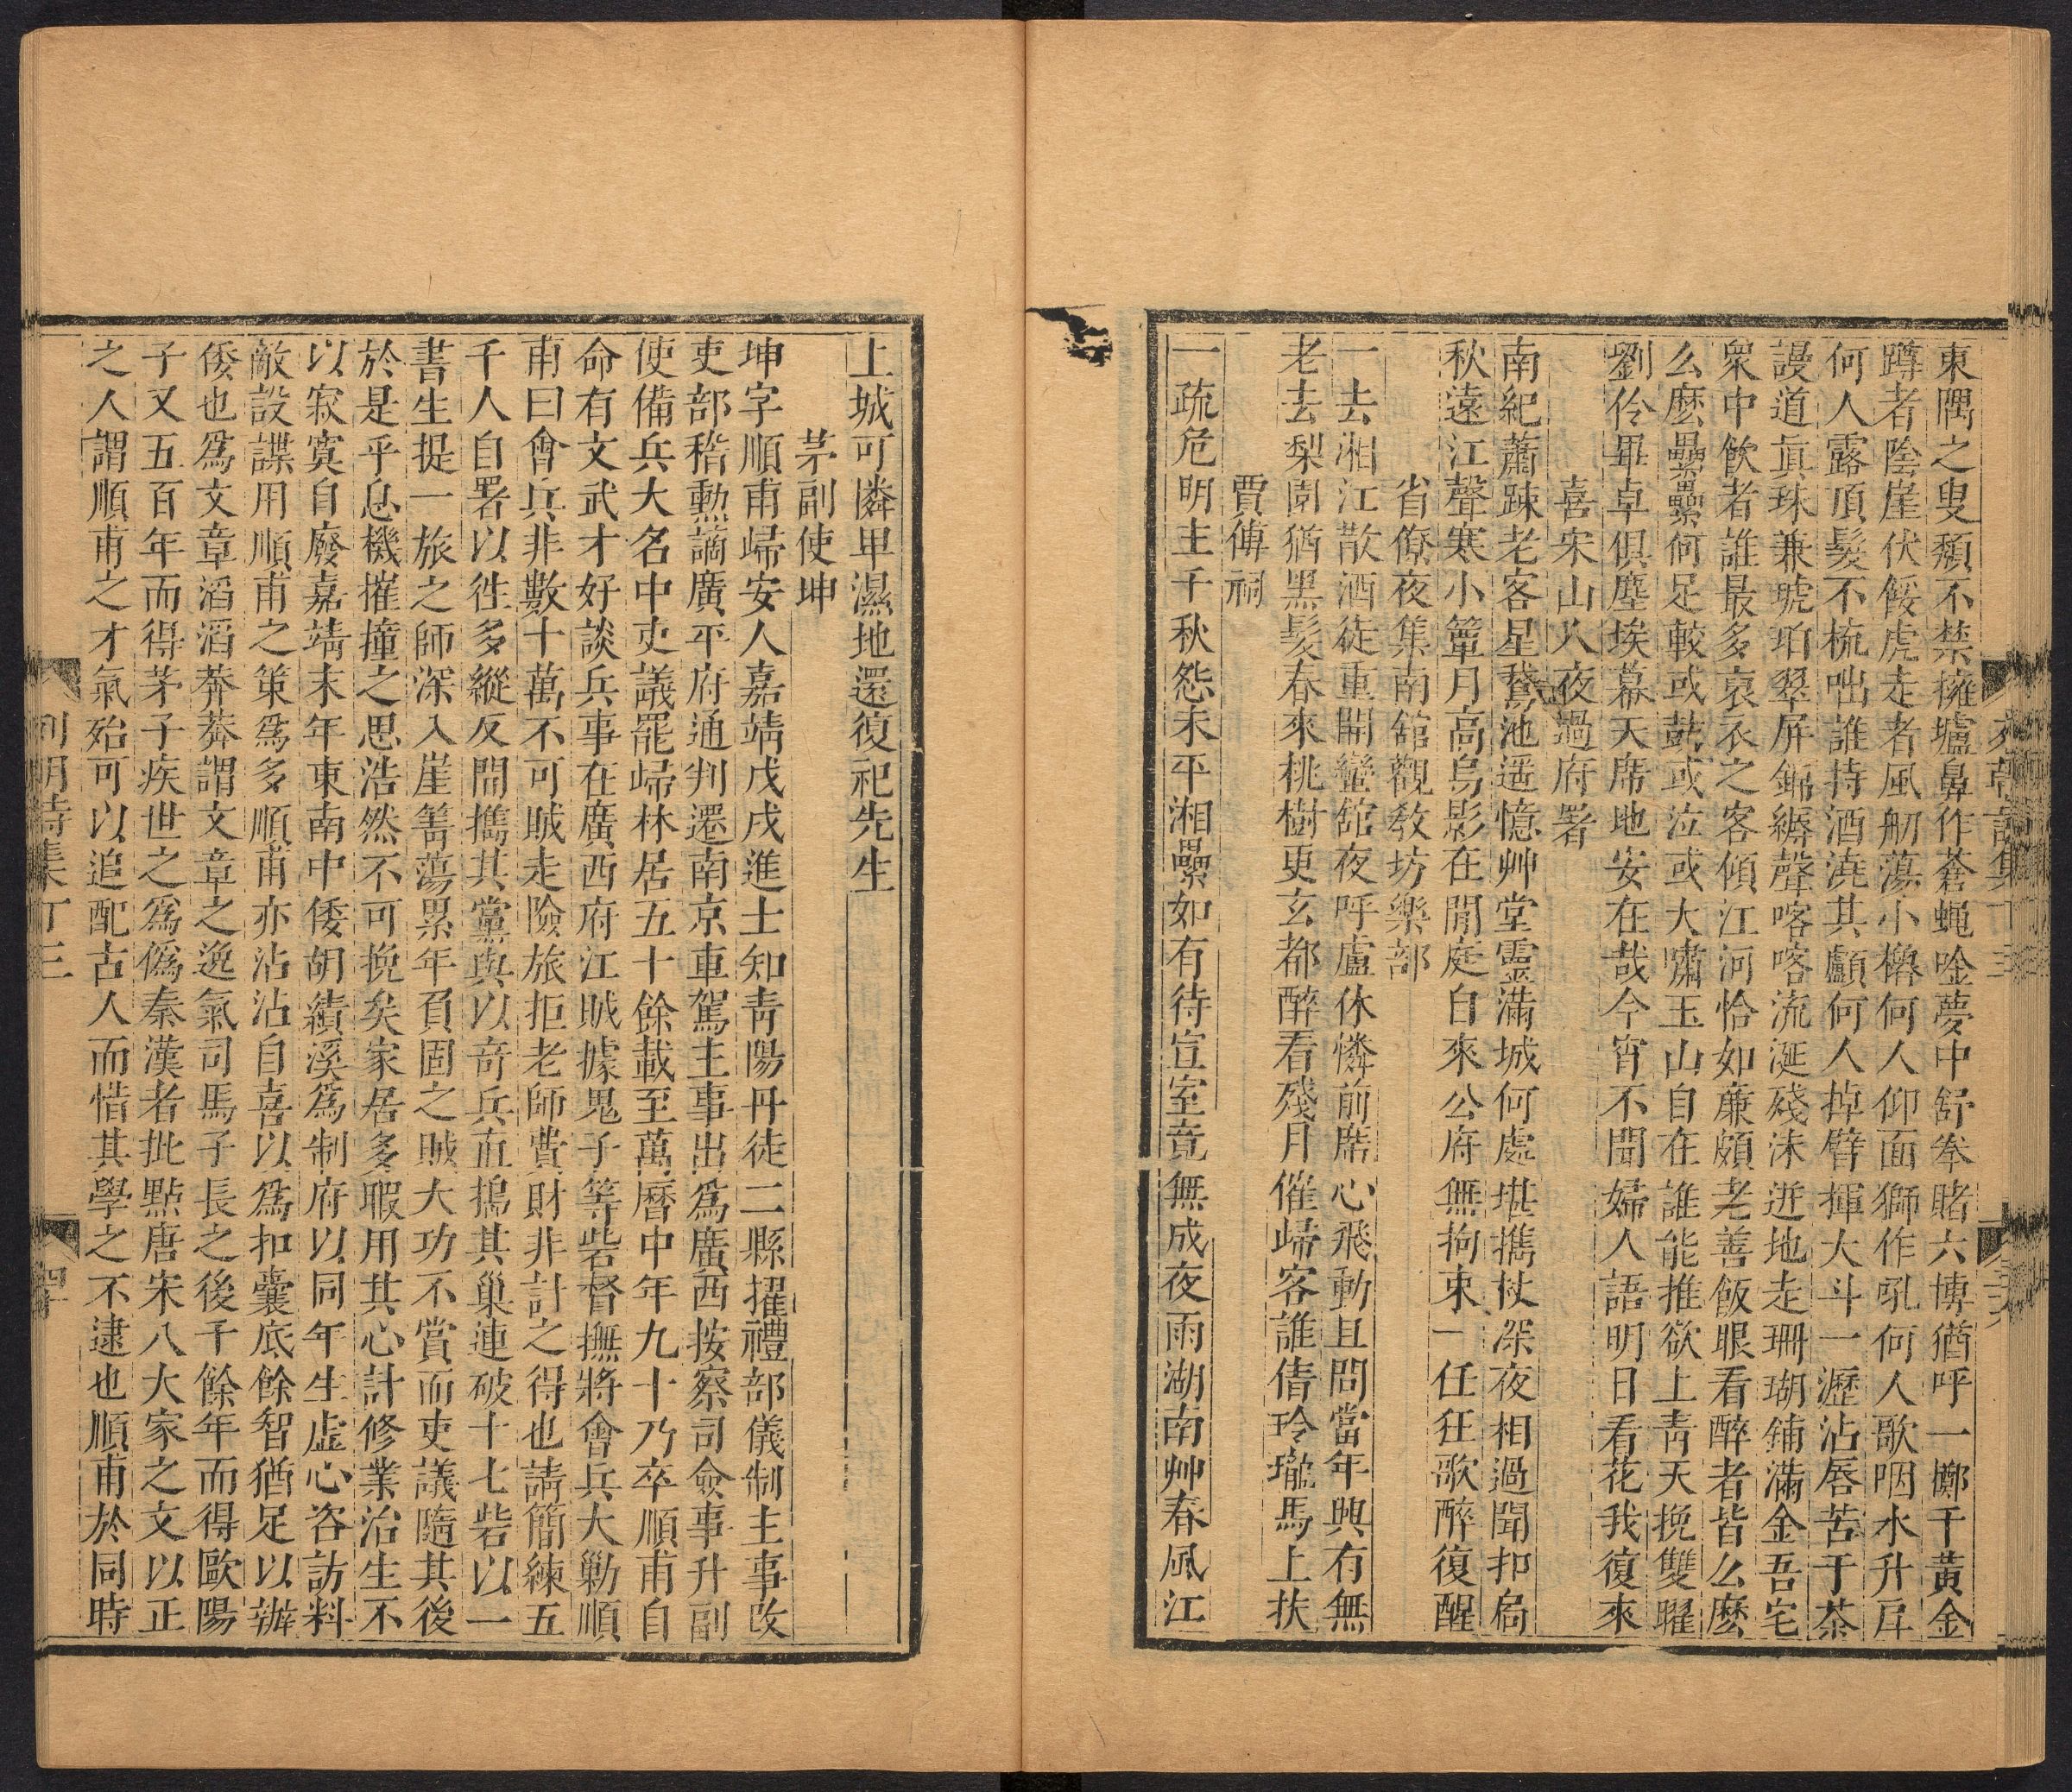 東隅之叟頹不禁擁壚鼻作蒼蝇唫夢中舒拳賭六博猶呼一擲千黃金
蹲者陰崖伏餒虎走者風舠蕩小櫓何人仰面獅作吼何人歌咽水升戽
何人露頂髮不梳咄誰持酒澆其顱何人掉臂揮大斗一瀝沾唇苦于荼
謾道眞珠兼琥珀翠屏錦縟聲喀喀流涎殘沫迸地走珊瑚鋪滿金吾宅
衆中飲者誰最多裒衣之客傾江河恰如亷頗老善飯眼看醉者皆么麽
么麽纍纍何足較或鼓或泣或大嘯玉山自在誰能推欲上靑天挽雙曜
劉伶畢卓俱塵埃幕天席地安在哉今宵不聞婦人語明日看花我復來
喜宋山人夜過府署
南紀蕭踈老客星鵞池遥憶艸堂靈滿城何處堪攜杖深夜相過聞扣扃
秋遠江聲寒小簟月高烏影在閒庭自來公府無拘束一任狂歌醉復醒
省僚夜集南舘觀敎坊樂部
一去湘江散酒徒重開蠻舘夜呼盧休憐前席心飛動且問當年興有無
老去梨園猶黑髮春來桃樹更玄都醉看殘月催歸客誰倩玲瓏馬上扶
賈傅祠
一疏危明主千秋怨未平湘纍如有待宣室竟無成夜雨湖南艸春風江
上城可憐𤰞濕地還復祀先生
茅副使坤
坤字順甫歸安人嘉靖戊戌進士知靑陽丹徒二縣擢禮部儀制主事改
吏部稽勲謫廣平府通判遷南京車駕主事出爲廣西按察司僉事升副
使備兵大名中吏議罷歸林居五十餘載至萬曆中年九十乃卒順甫自
命有文武才好談兵事在廣西府江賊據鬼子等砦督撫將會兵大勦順
甫曰會兵非數十萬不可賊走險旅拒老師費財非計之得也請簡練五
千人自署以徃多縱反間攜其黨與以奇兵直搗其巢連破十七砦以一
書生提一旅之師深入崖箐蕩累年負固之賊大功不賞而吏議隨其後
於是乎息機摧撞之思浩然不可挽矣家居多暇用其心計修業治生不
以寂寞自廢嘉靖末年東南中倭胡績溪爲制府以同年生虛心咨訪料
敵設諜用順甫之策爲多順甫亦沾沾自喜以爲扣囊底餘智猶足以辦
倭也爲文章滔滔莽莽謂文章之逸氣司馬子長之後千餘年而得歐陽
子又五百年而得茅子疾世之爲僞秦漢者批點唐宋八大家之文以正
之人謂順甫之才氣殆可以追配古人而惜其學之不逮也順甫於同時
列朝詩集丁三